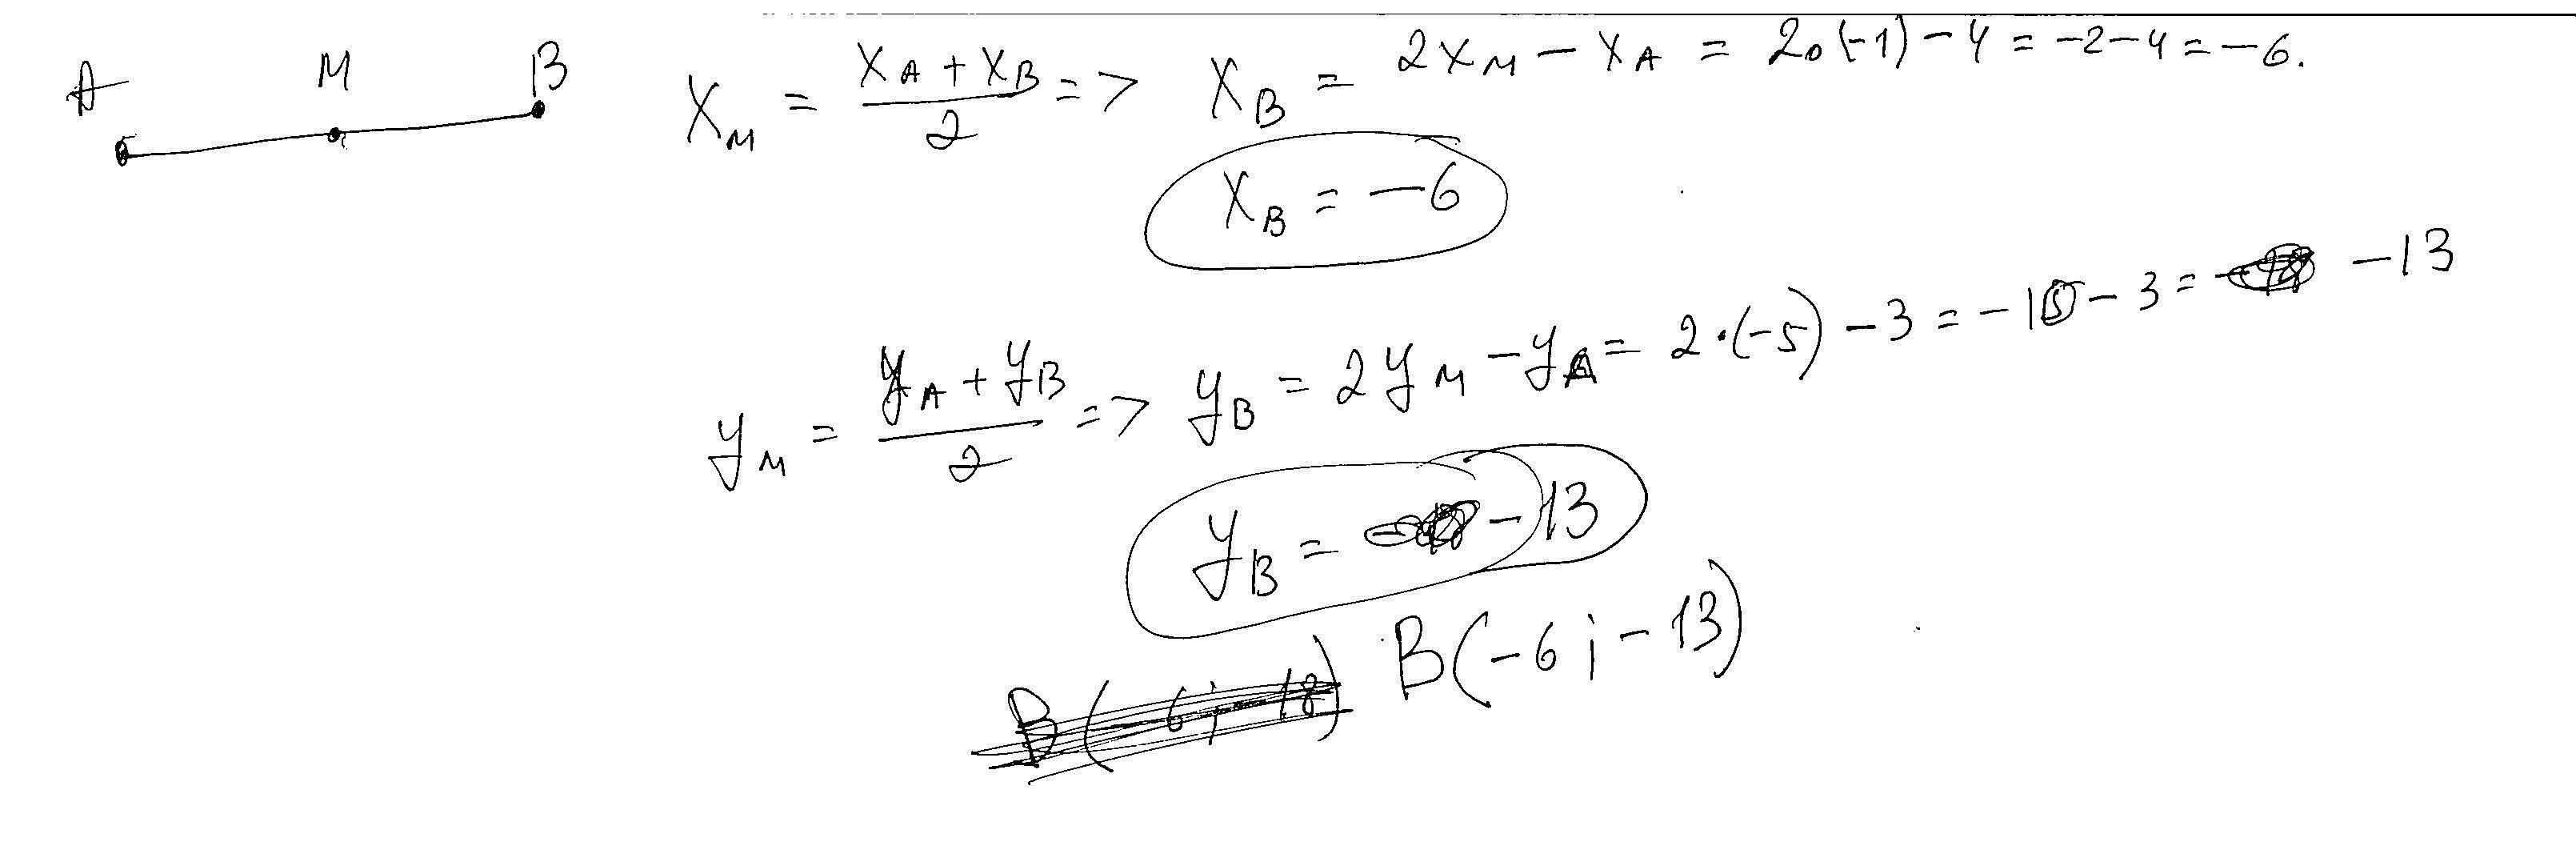 A M B
x_M = (x_A + x_B)/2 => x_B = 2x_M - x_A = 2·(-1) - 4 = -2 - 4 = -6.
x_B = -6
y_M = (y_A + y_B)/2 => y_B = 2y_M - y_A = 2·(-5) - 3 = -10 - 3 = -13
y_B = -13
B(-6; -18) B(-6; -13)